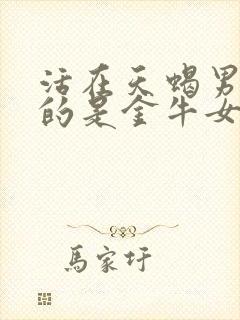 活在天蝎男
的是金牛女
馬家圩